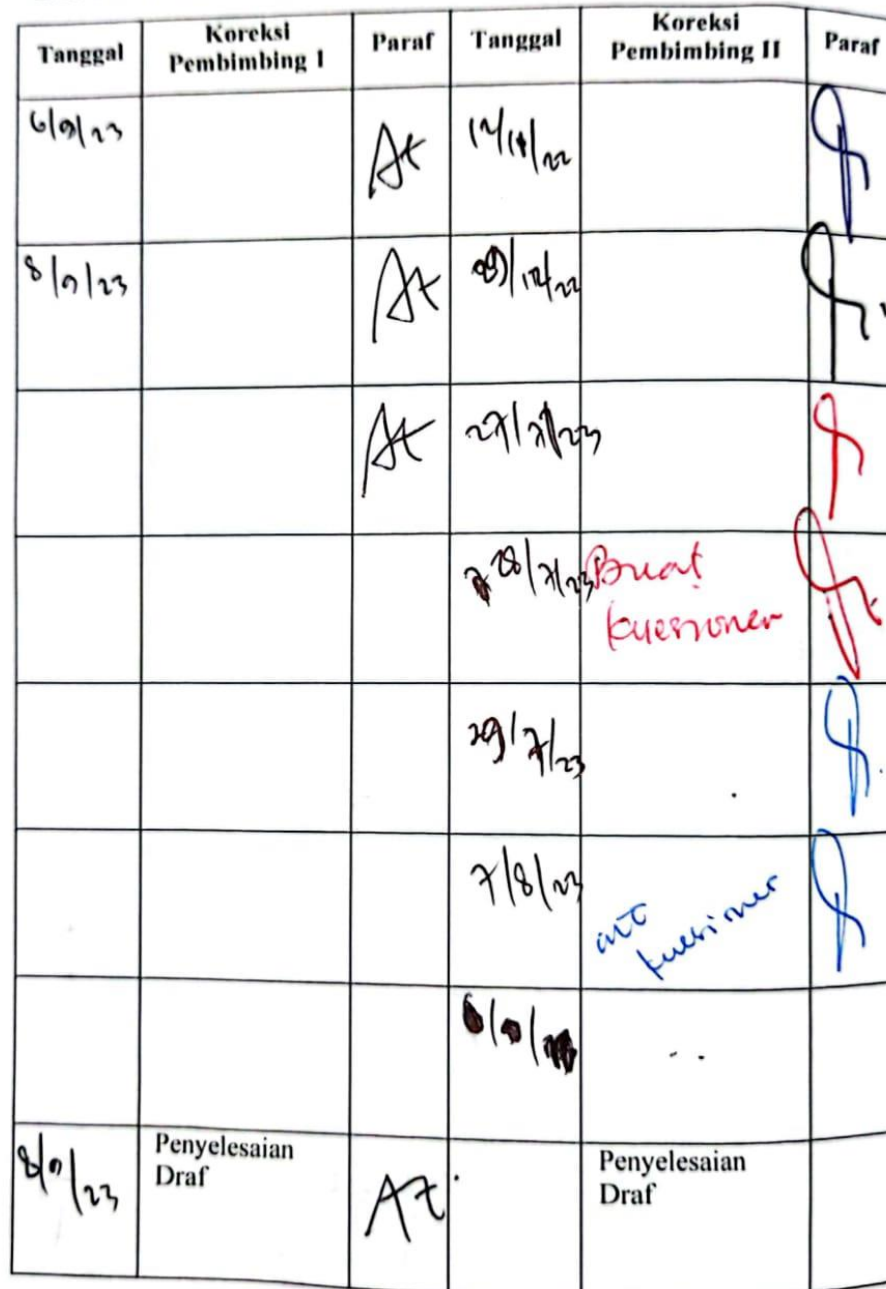 Tanggal Koreksi Pembimbing I Paraf Tanggal Koreksi Pembimbing II Paraf
6/9/23 At
8/9/23 At
At 27/7/23
28/7/23 Buat
kuesioner
29/7/23
7/8/23
kuesioner
8/9/23 Penyelesaian At Penyelesaian
Draf Draf